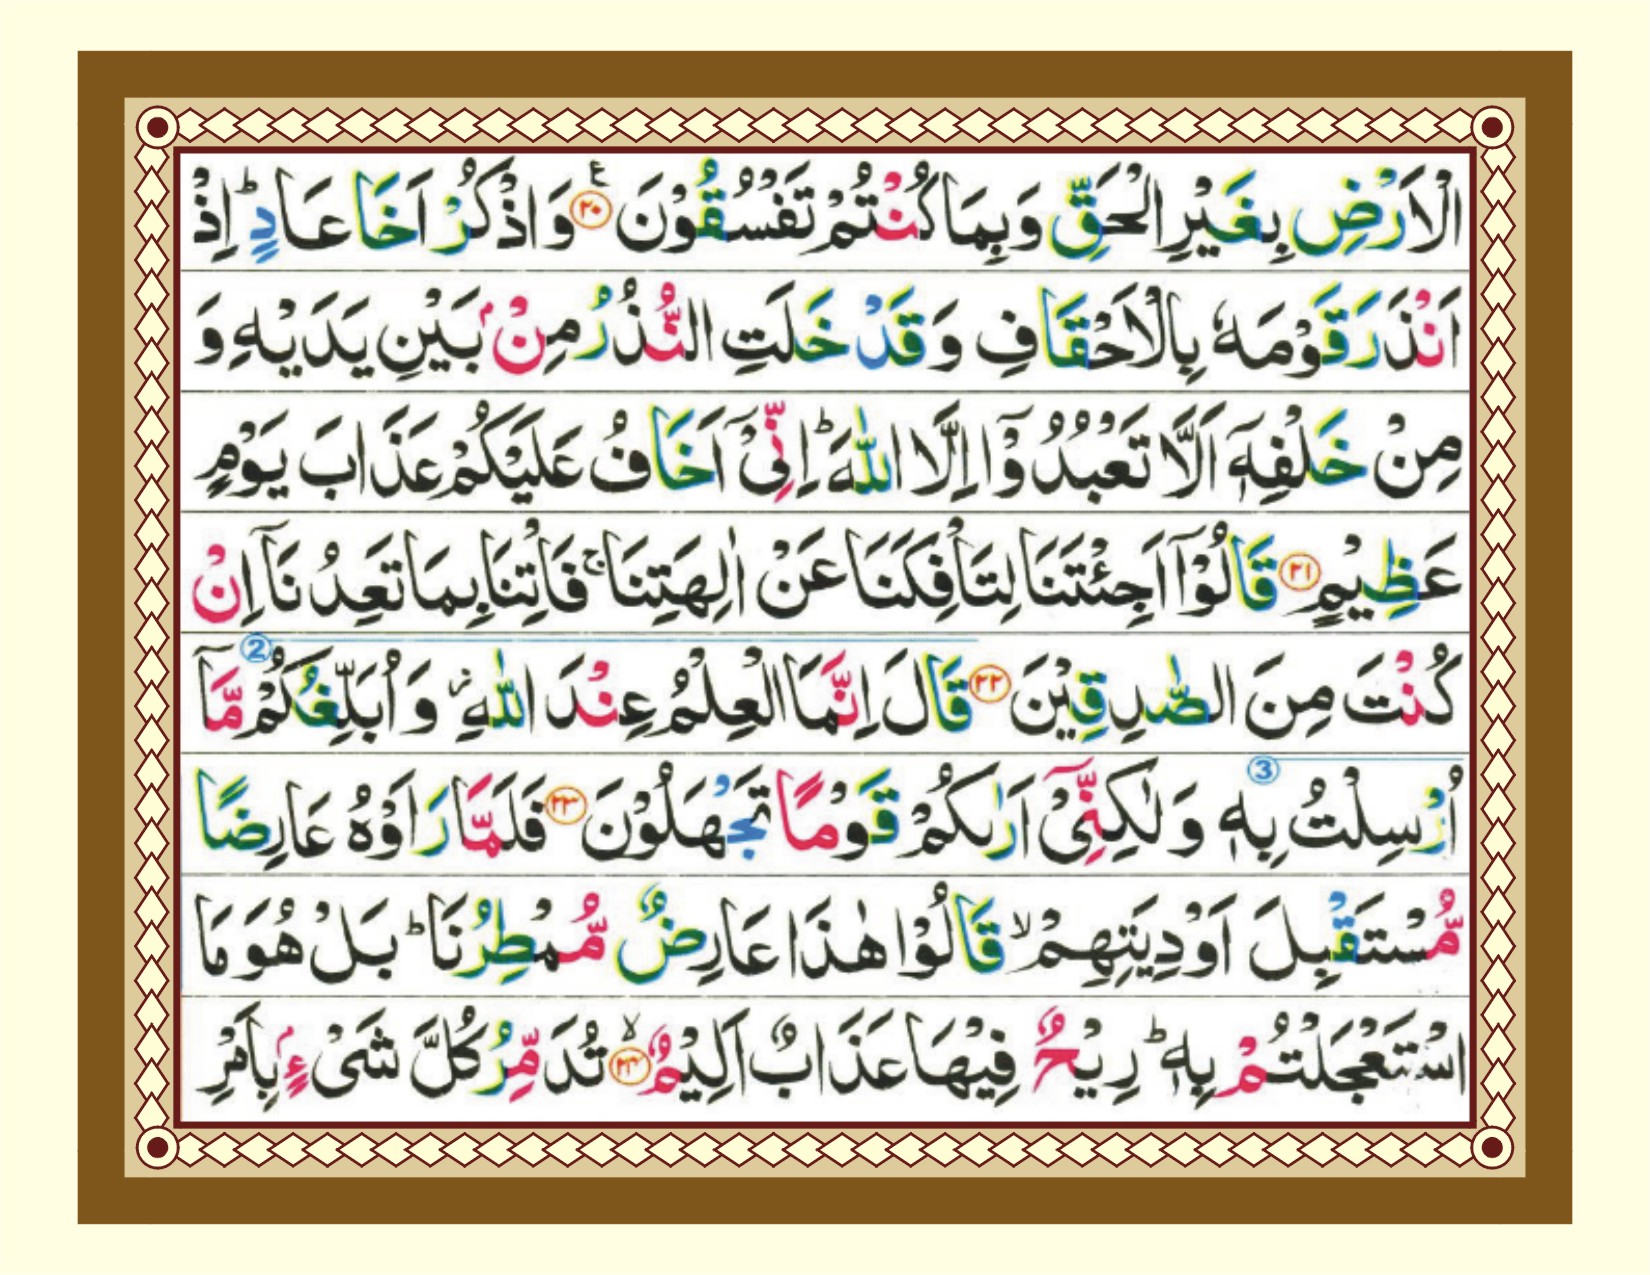 الْاَرْضِ بِغَيْرِ الْحَقِّ وَبِمَا كُنْتُمْ تَفْسُقُوْنَ ۲۰ ع وَاذْكُرْ اَخَا عَادٍ ؕ اِذْ
اَنْذَرَ قَوْمَهٗ بِالْاَحْقَافِ وَقَدْ خَلَتِ النُّذُرُ مِنْۢ بَيْنِ يَدَيْهِ وَ
مِنْ خَلْفِهٖۤ اَلَّا تَعْبُدُوْۤا اِلَّا اللّٰهَ ؕ اِنِّىْۤ اَخَافُ عَلَيْكُمْ عَذَابَ يَوْمٍ
عَظِيْمٍ ۲۱ قَالُوْۤا اَجِئْتَنَا لِتَاْفِكَنَا عَنْ اٰلِهَتِنَا ۚ فَاْتِنَا بِمَا تَعِدُنَاۤ اِنْ
كُنْتَ مِنَ الصّٰدِقِيْنَ ۲۲ قَالَ اِنَّمَا الْعِلْمُ عِنْدَ اللّٰهِ ؗ وَاُبَلِّغُكُمْ 2 مَّاۤ
اُرْسِلْتُ بِهٖ 3 وَلٰكِنِّىْۤ اَرٰىكُمْ قَوْمًا تَجْهَلُوْنَ ۲۳ فَلَمَّا رَاَوْهُ عَارِضًا
مُّسْتَقْبِلَ اَوْدِيَتِهِمْ ۙ قَالُوْا هٰذَا عَارِضٌ مُّمْطِرُنَا ؕ بَلْ هُوَ مَا
اسْتَعْجَلْتُمْ بِهٖ ؕ رِيْحٌ فِيْهَا عَذَابٌ اَلِيْمٌ ۙ ۲۴ تُدَمِّرُ كُلَّ شَىْءٍۭ بِاَمْرِ